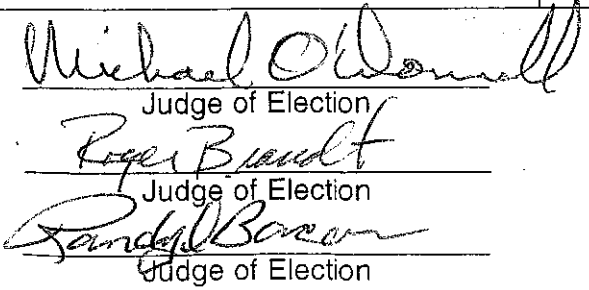 Michael O'Donnell
Judge of Election
Roger Brandt
Judge of Election
Judge of Election